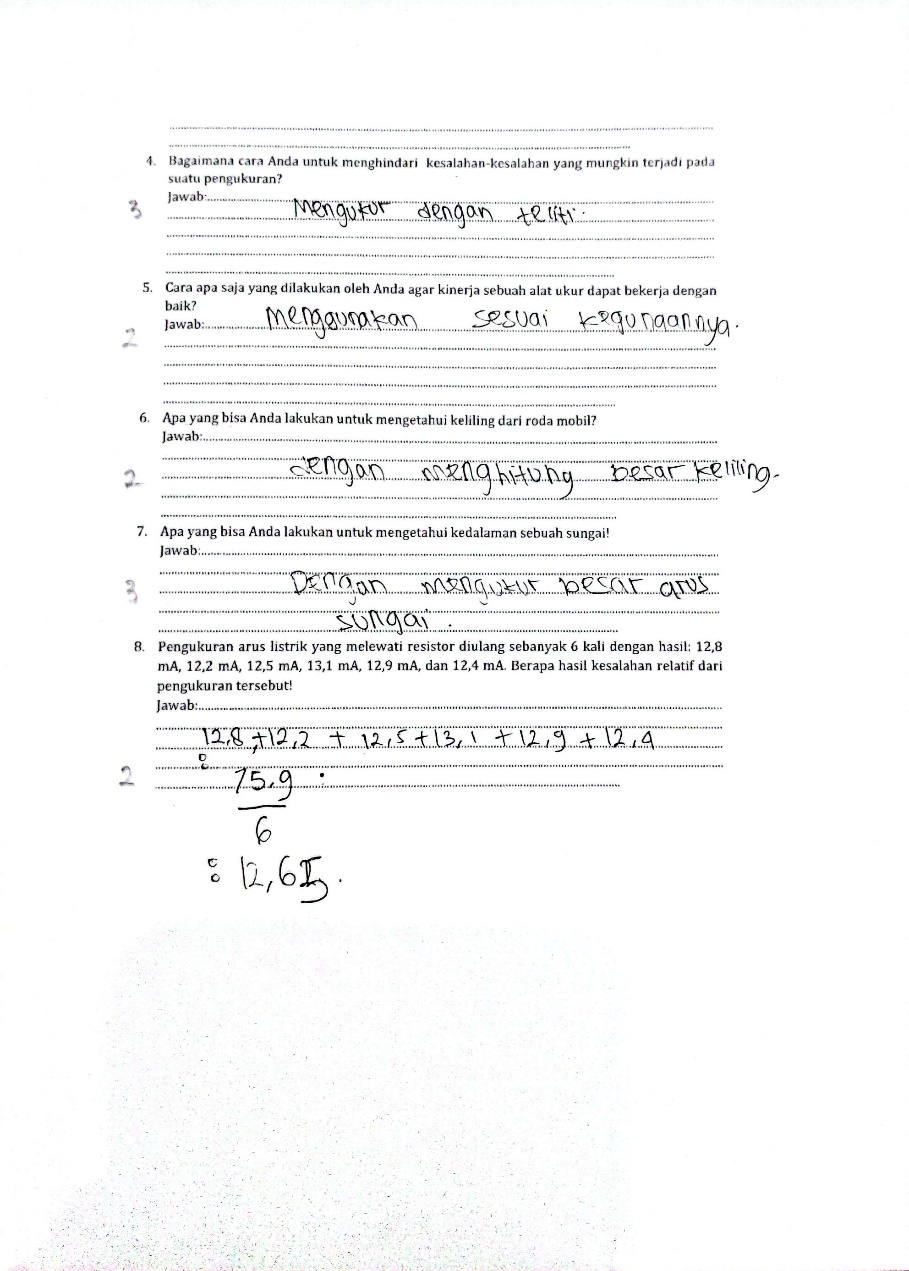 4. Bagaimana cara Anda untuk menghindari kesalahan-kesalahan yang mungkin terjadi pada
suatu pengukuran?
Jawab:
3 Mengukur dengan teliti.
5. Cara apa saja yang dilakukan oleh Anda agar kinerja sebuah alat ukur dapat bekerja dengan
baik?
Jawab: Menggunakan sesuai kegunaannya.
2
6. Apa yang bisa Anda lakukan untuk mengetahui keliling dari roda mobil?
Jawab:
2 dengan menghitung besar keliling.
7. Apa yang bisa Anda lakukan untuk mengetahui kedalaman sebuah sungai!
Jawab:
3 Dengan mengukur besar arus
sungai.
8. Pengukuran arus listrik yang melewati resistor diulang sebanyak 6 kali dengan hasil: 12,8
mA, 12,2 mA, 12,5 mA, 13,1 mA, 12,9 mA, dan 12,4 mA. Berapa hasil kesalahan relatif dari
pengukuran tersebut!
Jawab:
12,8 + 12,2 + 12,5 + 13,1 + 12,9 + 12,4
2 : 75,9 :
6
: 12,65.